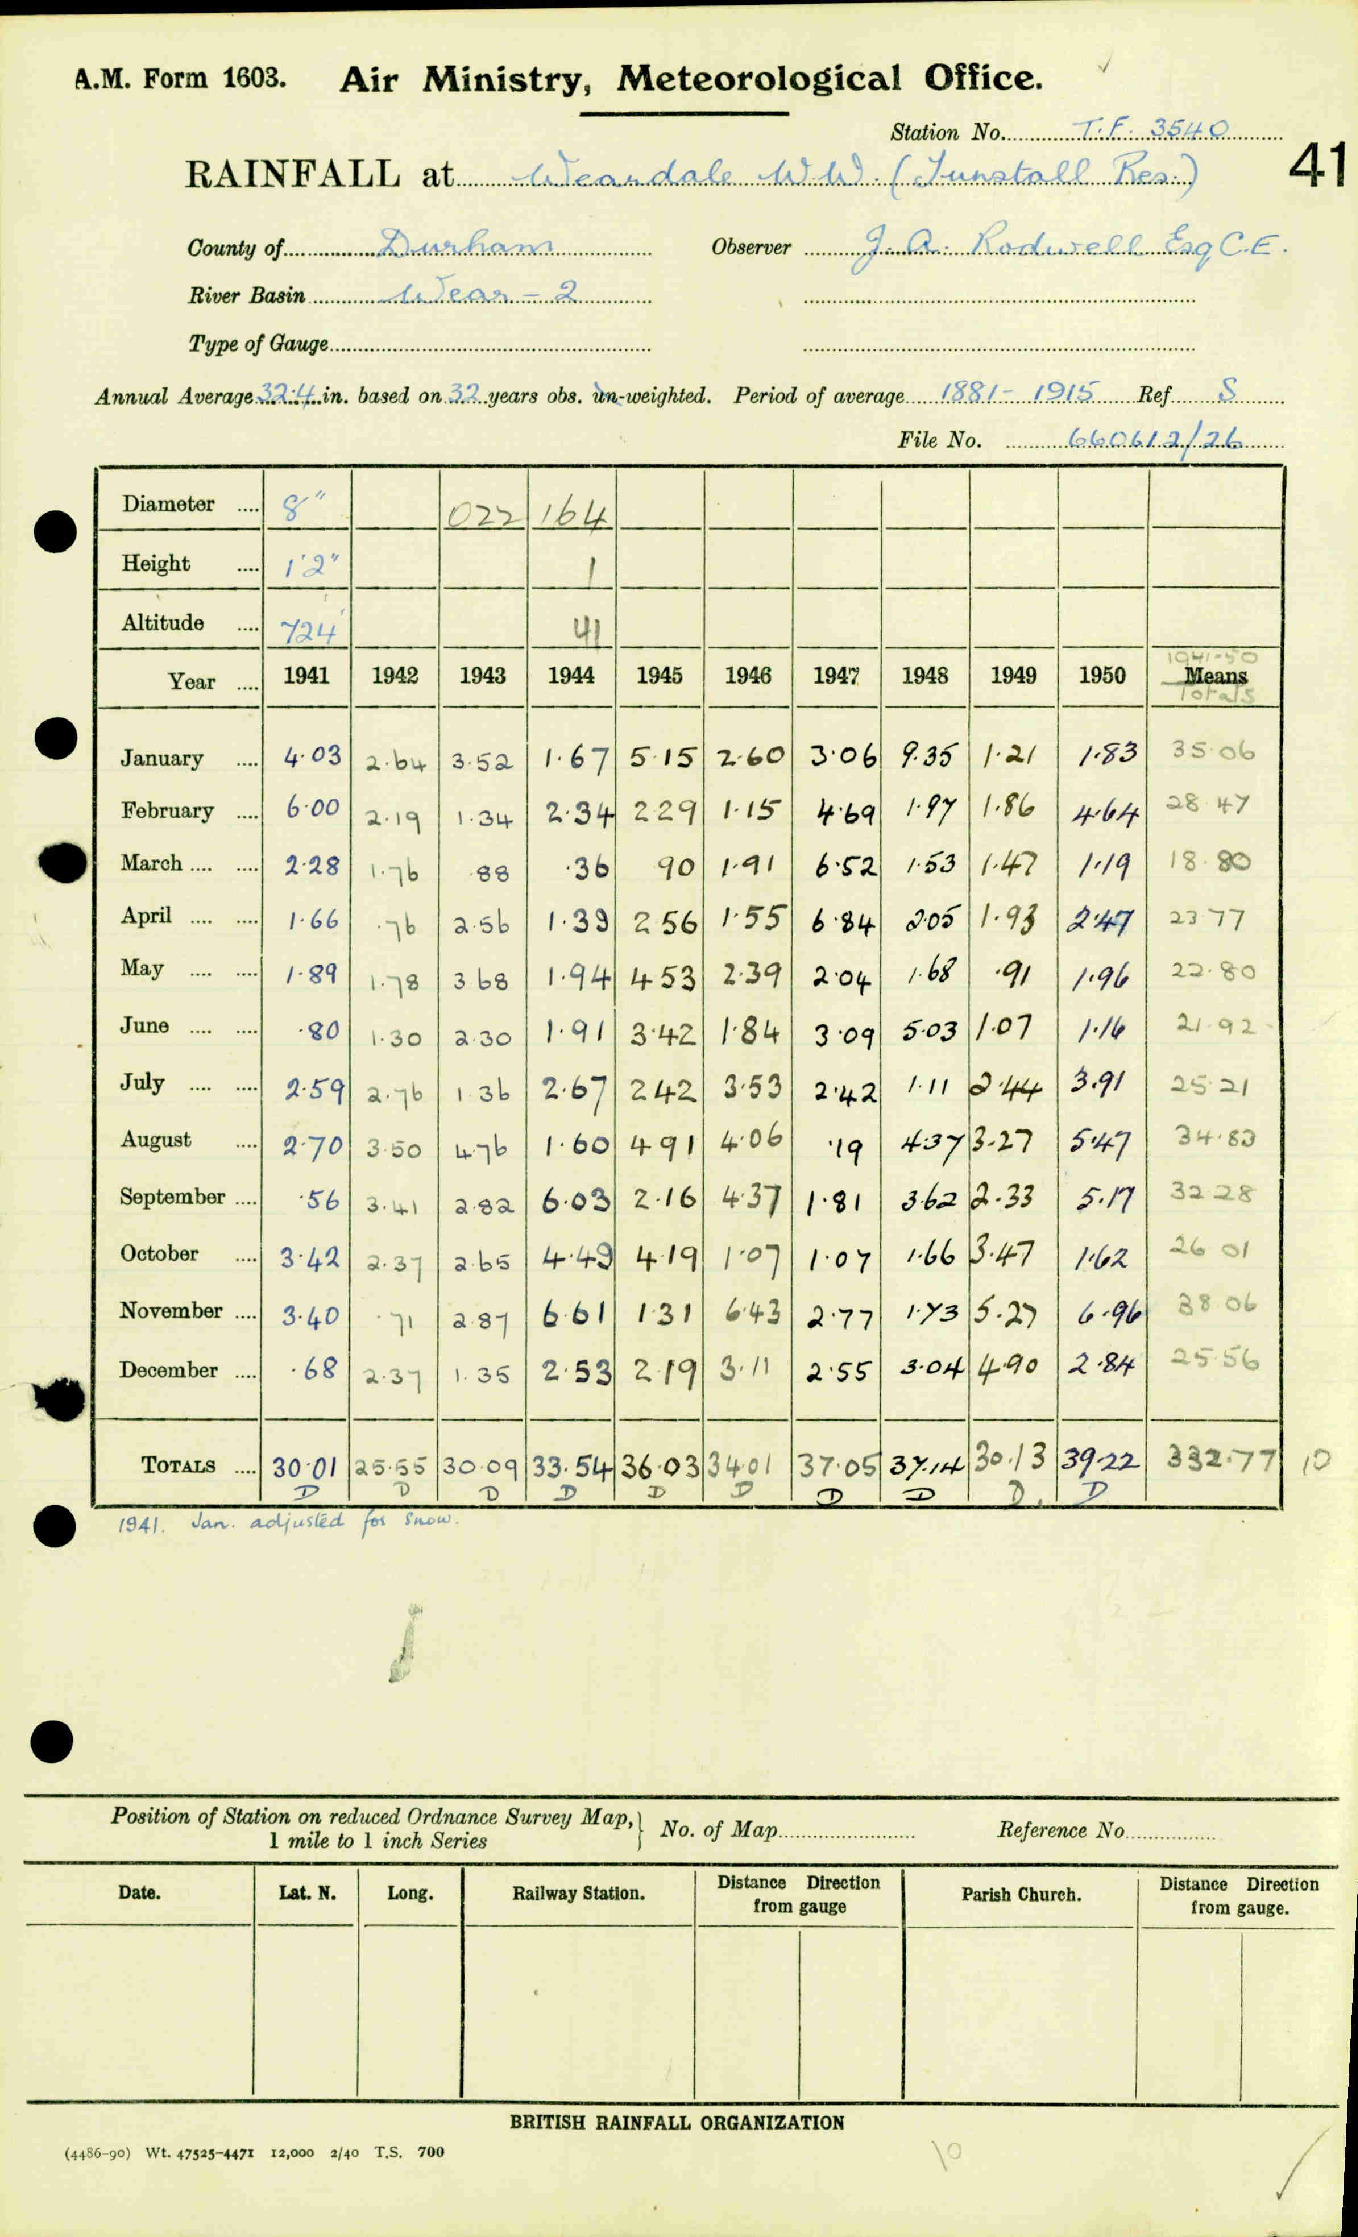 A.M. Form 1603. Air Ministry, Meteorological Office.
Station No. T.F. 3540
RAINFALL at Weardale W.W. (Tunstall Res.) 41
County of Durham Observer J. A. Rodwell Esq C.E.
River Basin Wear - 2
Type of Gauge
Annual Average 32.4 in. based on 32 years obs. un-weighted. Period of average 1881 - 1915 Ref S
File No. 660612/26
Diameter .... 8" 022 164
Height .... 1'2" 1
Altitude .... 724' 41
1941-50
Year .... 1941 1942 1943 1944 1945 1946 1947 1948 1949 1950 Means
Totals
January .... 4.03 2.64 3.52 1.67 5.15 2.60 3.06 9.35 1.21 1.83 35.06
February .... 6.00 2.19 1.34 2.34 2.29 1.15 4.69 1.97 1.86 4.64 28.47
March .... .... 2.28 1.76 .88 .36 90 1.91 6.52 1.53 1.47 1.19 18.80
April .... .... 1.66 .76 2.56 1.39 2.56 1.55 6.84 2.05 1.93 2.47 23.77
May .... .... 1.89 1.78 3.68 1.94 4.53 2.39 2.04 1.68 .91 1.96 22.80
June .... .... .80 1.30 2.30 1.91 3.42 1.84 3.09 5.03 1.07 1.16 21.92
July .... .... 2.59 2.76 1.36 2.67 2.42 3.53 2.42 1.11 2.44 3.91 25.21
August .... 2.70 3.50 4.76 1.60 4.91 4.06 .19 4.37 3.27 5.47 34.83
September .... .56 3.41 2.82 6.03 2.16 4.37 1.81 3.62 2.33 5.17 32.28
October .... 3.42 2.37 2.65 4.49 4.19 1.07 1.07 1.66 3.47 1.62 26.01
November .... 3.40 .71 2.87 6.61 1.31 6.43 2.77 1.73 5.27 6.96 38.06
December .... .68 2.37 1.35 2.53 2.19 3.11 2.55 3.04 4.90 2.84 25.56
TOTALS .... 30.01 25.55 30.09 33.54 36.03 34.01 37.05 37.14 30.13 39.22 332.77 10
D D D D D D D D D. D
1941. Jan. adjusted for snow.
Position of Station on reduced Ordnance Survey Map, } No. of Map Reference No
1 mile to 1 inch Series
Date. Lat. N. Long. Railway Station. Distance Direction from gauge Parish Church. Distance Direction from gauge.
BRITISH RAINFALL ORGANIZATION
(4486-90) Wt. 47525-4471 12,000 2/40 T.S. 700
10